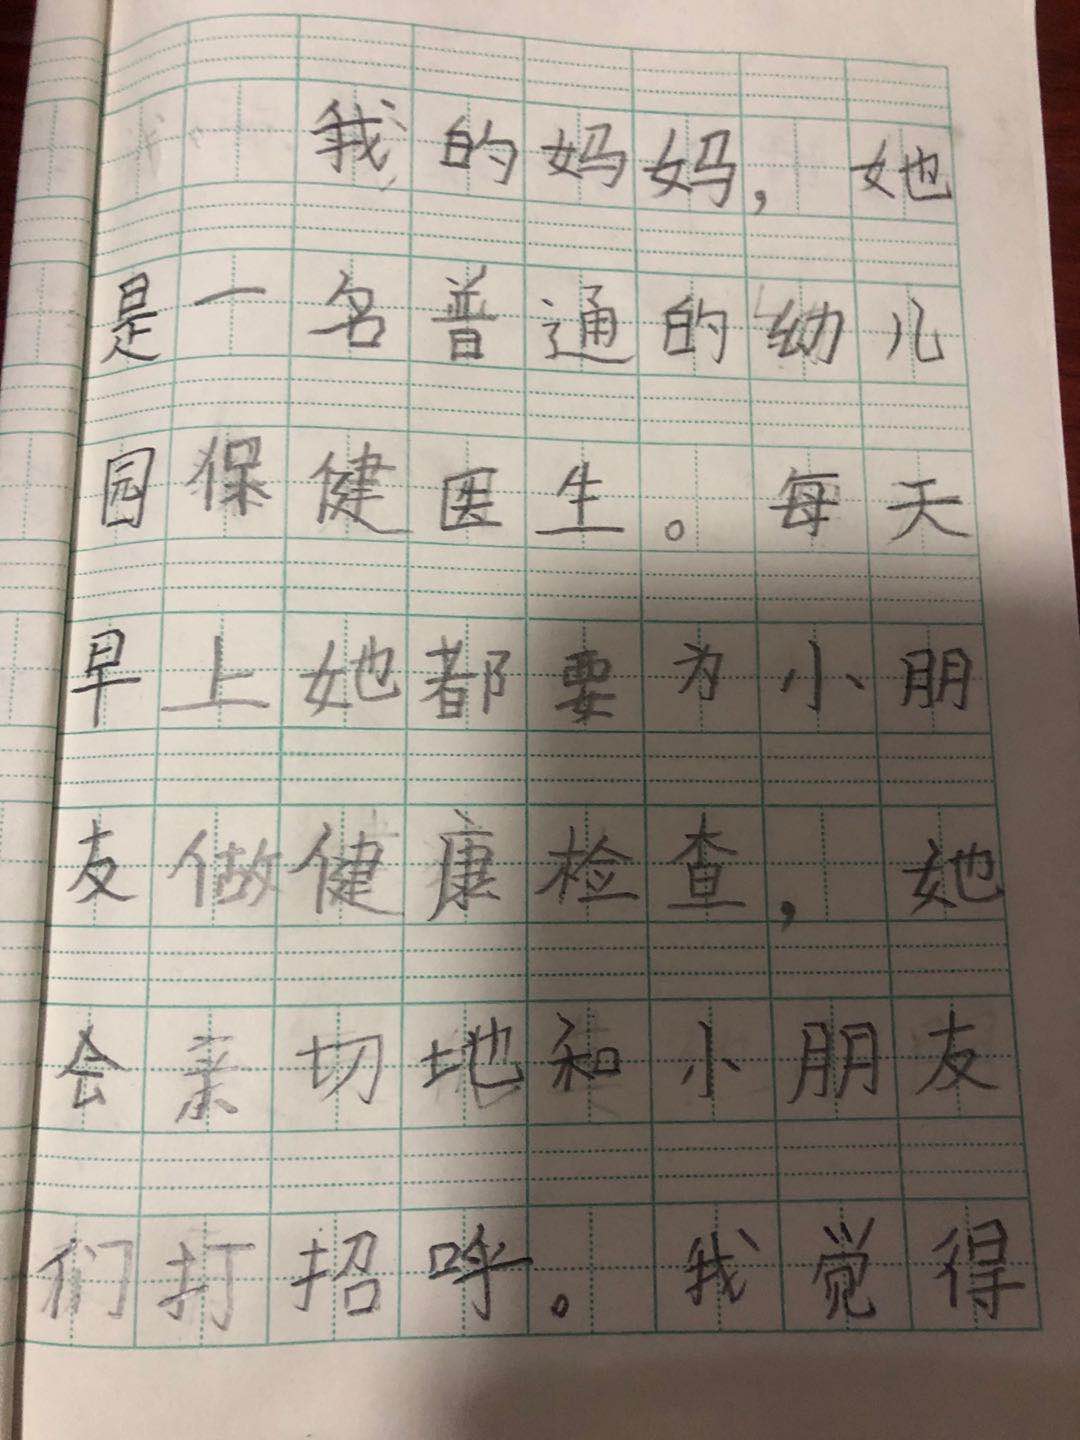 我的妈妈，她
是一名普通的幼儿
园保健医生。每天
早上她都要为小朋
友做健康检查，她
会亲切地和小朋友
们打招呼。我觉得